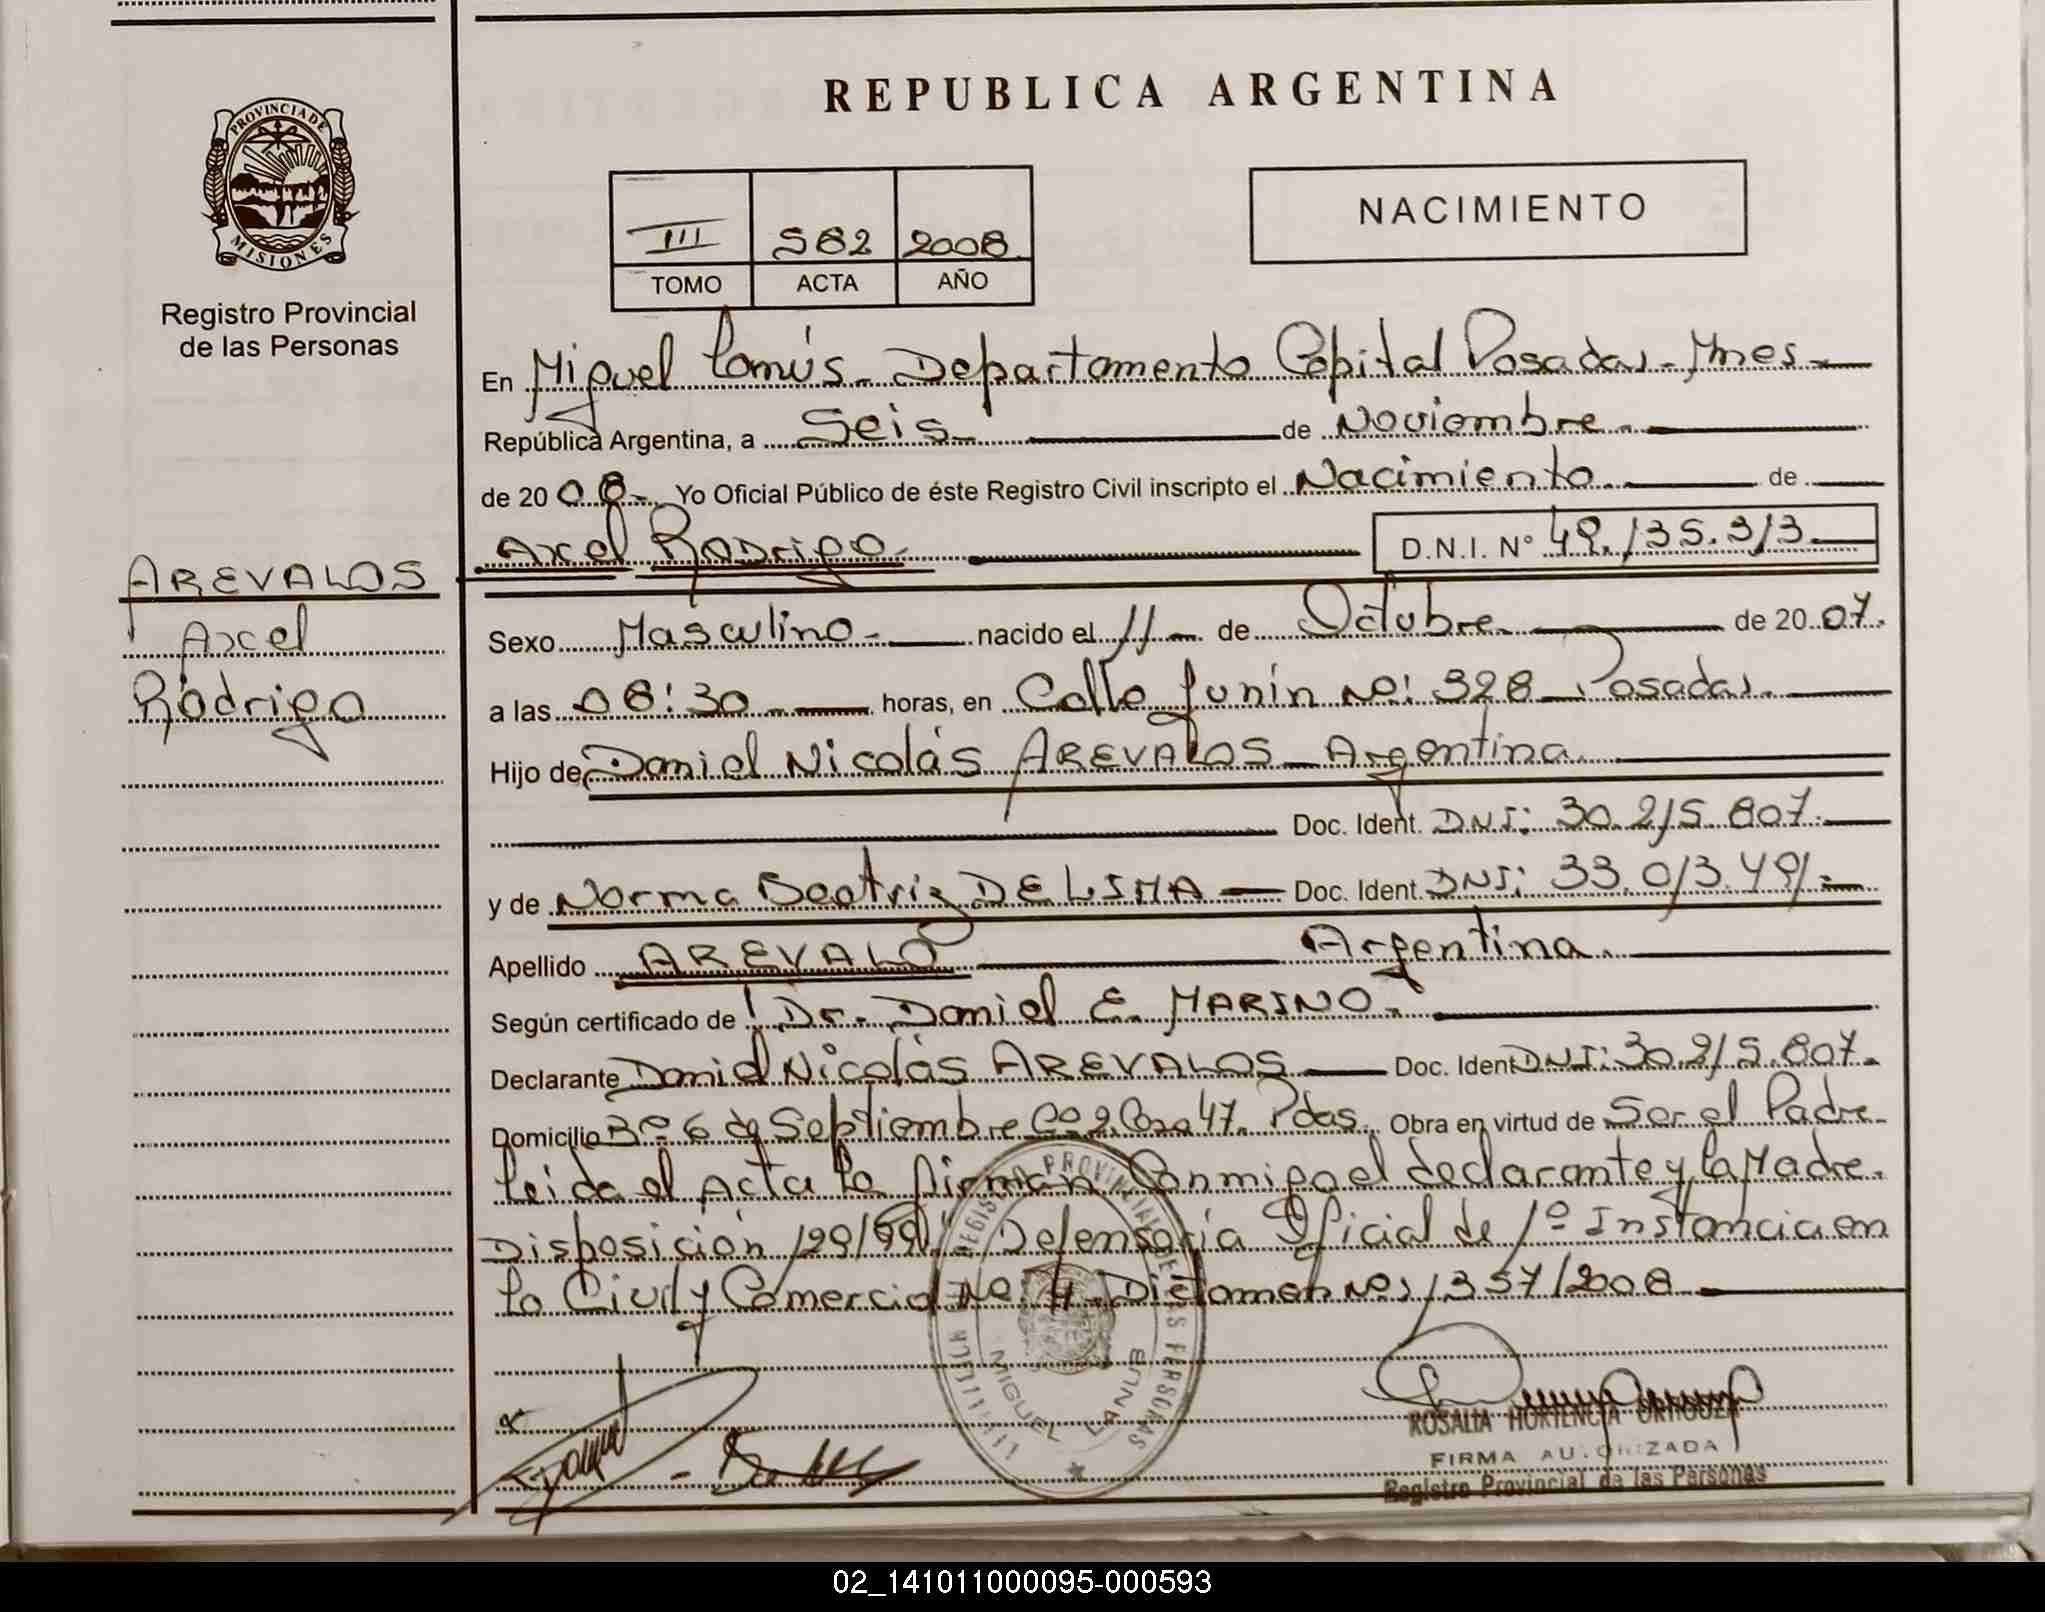 REPUBLICA ARGENTINA
PROVINCIA DE
MISIONES
Registro Provincial
de las Personas
NACIMIENTO
III 582 2008
TOMO ACTA AÑO
En Miguel Lanús - Departamento Capital Posadas - Mnes -
República Argentina, a Seis - de Noviembre -
de 20 08 - Yo Oficial Público de éste Registro Civil inscripto el Nacimiento de
Axel Rodrigo - D.N.I. N° 49.135.313 -
AREVALOS
Axel
Rodrigo
Sexo Masculino - nacido el 11 - de Octubre de 20 07.
a las 08:30 - horas, en Calle Junín Nº: 328 - Posadas.
Hijo de Daniel Nicolás AREVALOS - Argentina.
Doc. Ident. DNI: 30.215.807.
y de Norma Beatriz DE LIMA - Doc. Ident. DNI: 33.013.491 -
Apellido AREVALO Argentina.
Según certificado de Dr. Daniel E. MARINO.
Declarante Daniel Nicolás AREVALOS - Doc. Ident DNI: 30.215.807.
Domicilio Bº 6 de Septiembre Cº 2 Casa 47. Pdas. Obra en virtud de Ser el Padre.
Leida el Acta la firman Conmigo el declarante y la Madre.
Disposición 129/99 - Defensoría Oficial de 1º Instancia en
lo Civil y Comercial Nº 4 - Dictamen Nº 1357/2008
REGISTRO PROVINCIAL DE LAS PERSONAS
MIGUEL LANUS
ROSALIA HORTENCIA
FIRMA AUTORIZADA
Registro Provincial de las Personas
02_141011000095-000593